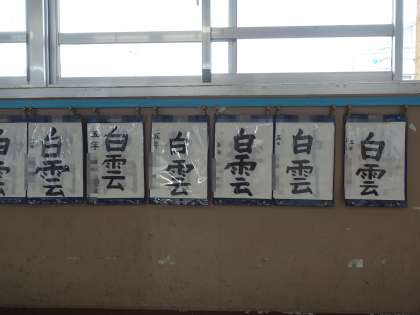 白雲
白雲
五年
白雲
五年
白雲
白雲
白雲
白雲